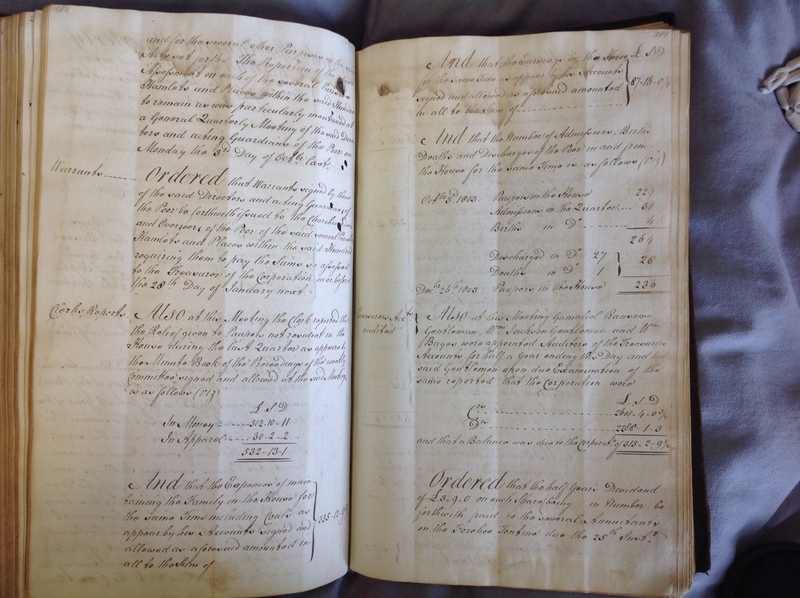 and for the several other Purposes in the
Act set forth. The Proportion of the
Assessment on each of the several Parishes
Hamlets and Places within the said Hundred
to remain as was particularly mentioned at
a General Quarterly Meeting of the said Direc
tors and acting Guardians of the Poor on
Monday the 3d Day of Octr. last
Warrants
Ordered that Warrants signed by three
of the said Directors and acting Guardians of
the Poor be forthwith issued to the Church
and Overseers of the Poor of the said several
Hamlets and Places within the said Hundred
requiring them to pay the Sums so assessed
to the Treasurer of the Corporation on or before
the 28th Day of January next.
Clerks Reports
Also at this Meeting the Clerk reported that
the Relief given to Paupers not resident in the
House during the last Quarter as appears by
the Minute Book of the Proceedings of the weekly
Committee signed and allowed at the said Meeting
is as follows (viz)
£ S D
In Money 502-10-11
In Apparel 30-2-2
532-13-1
And that the Expences of main
taining the Family in the House for
the same Time including Coals as
appear by his Accounts signed and
allowed as aforesaid amounted in
all to the Sum of
And that the Earnings in the House £ S D
for the same Time as appear by his Accounts
signed and allowed as aforesaid amounted
in all to the Sum of
And that the Number of Admissions, Births
Deaths and Discharges of the Poor in and from
the House for the same Time is as follows (viz)
Octbr 3d 1803 Paupers in the House 229
Admissions in the Quarter 31
Births in Do 4
264
Discharged in Do 27
Deaths in Do 1 } 28
Decbr 26th 1803 Paupers in the House 236
audited
Also at this Meeting Gamaliel Ransome
Gentleman, Wm. Jackson Gentleman and Wm.
Bayes were appointed Auditors of the Treasurers
Accounts for half a Year ending this Day and the
said Gentlemen upon due Examination of the
same reported that the Corporation were
£ S D
Cr.
Dr. 2288-1-3
and that a Balance was due to the Corporn. of
Ordered that the half Years Dividend
of £3-9-0 on each Share being in Number be
forthwith paid to the several Annuitants
on the Forehoe Tontine due the 25th Inst.